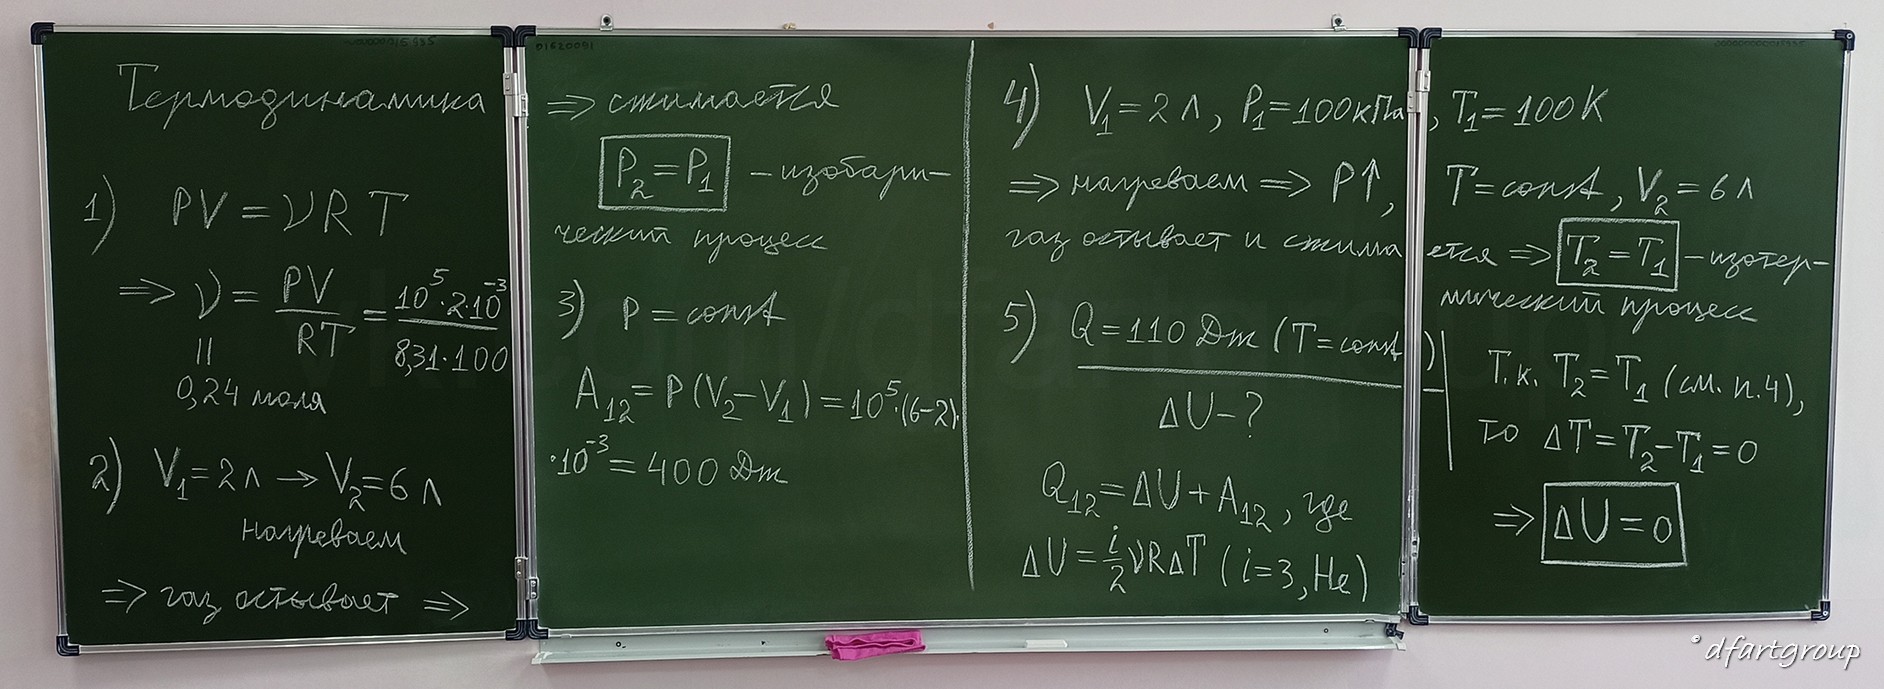 Термодинамика
1) PV = νRT
⇒ ν = PV/RT = 10⁵·2·10⁻³/8,31·100
||
0,24 моля
2) V₁=2л → V₂=6л
нагреваем
⇒ газ остывает ⇒
⇒ сжимается
P₂ = P₁ – изобари-
ческий процесс
3) P = const
A₁₂ = P(V₂–V₁) = 10⁵·(6–2)·
·10⁻³ = 400 Дж
4) V₁=2л, P₁=100кПа, T₁=100К
⇒ нагреваем ⇒ P↑, T=const, V₂=6л
газ остывает и сжимается ⇒ T₂=T₁ – изотер-
мический процесс
5) Q=110 Дж (T=const)
ΔU–?
Q₁₂=ΔU+A₁₂, где
ΔU=i/2 νRΔT (i=3, He)
Т.к. T₂=T₁ (см. п.4),
то ΔT=T₂–T₁=0
⇒ ΔU=0
© dfartgroup